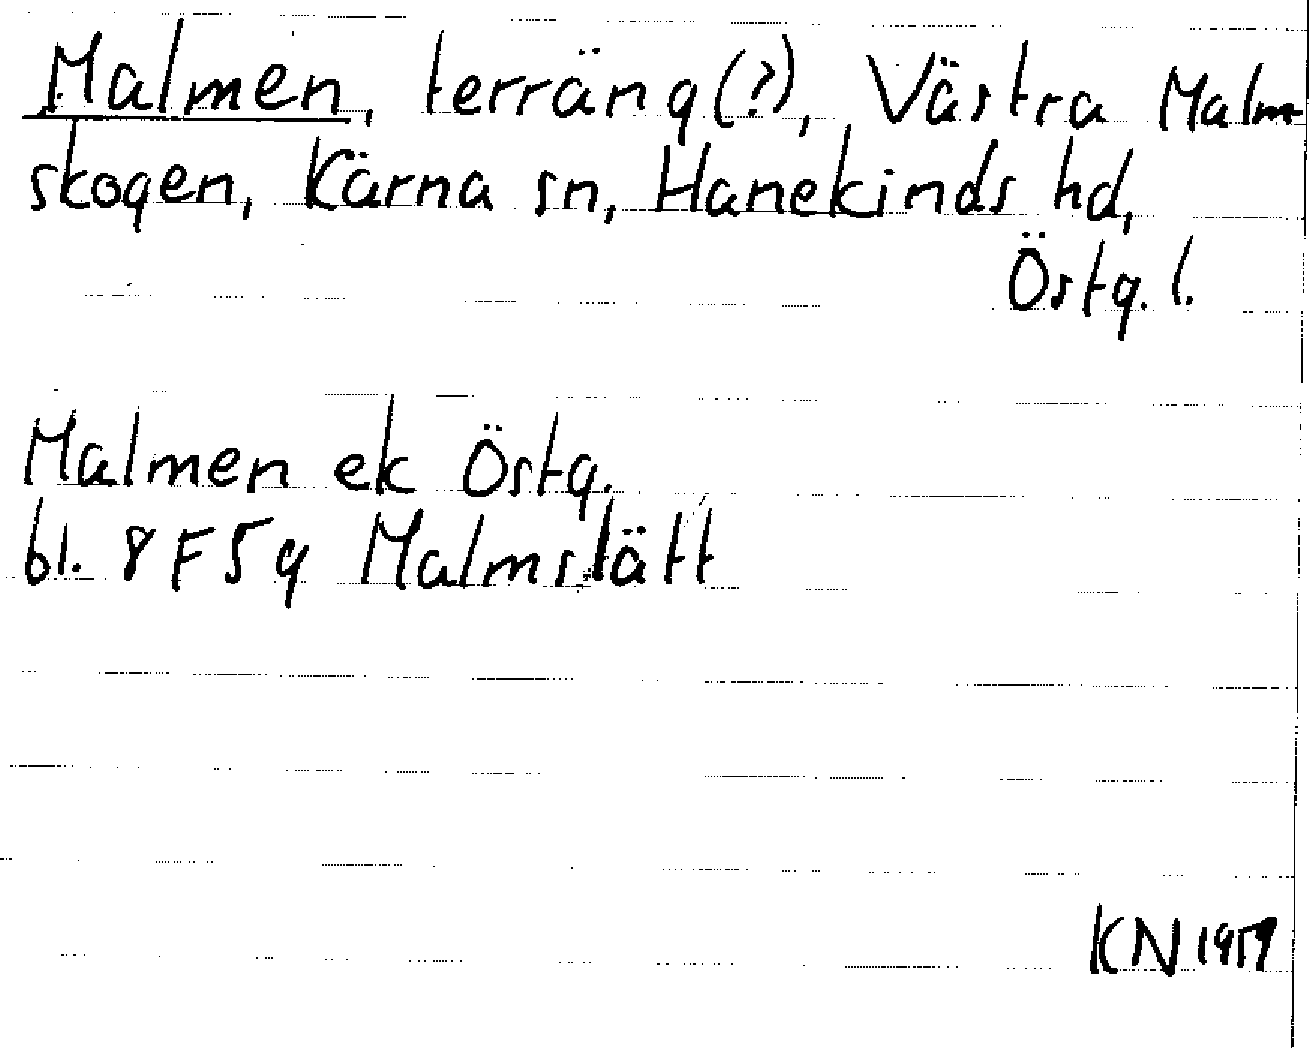 Malmen, terräng(?), Västra Malm-
skogen, Kärna sn, Hanekinds hd,
Östg. l.
Malmen ek Östg.
bl. 8F5g Malmslätt
KN